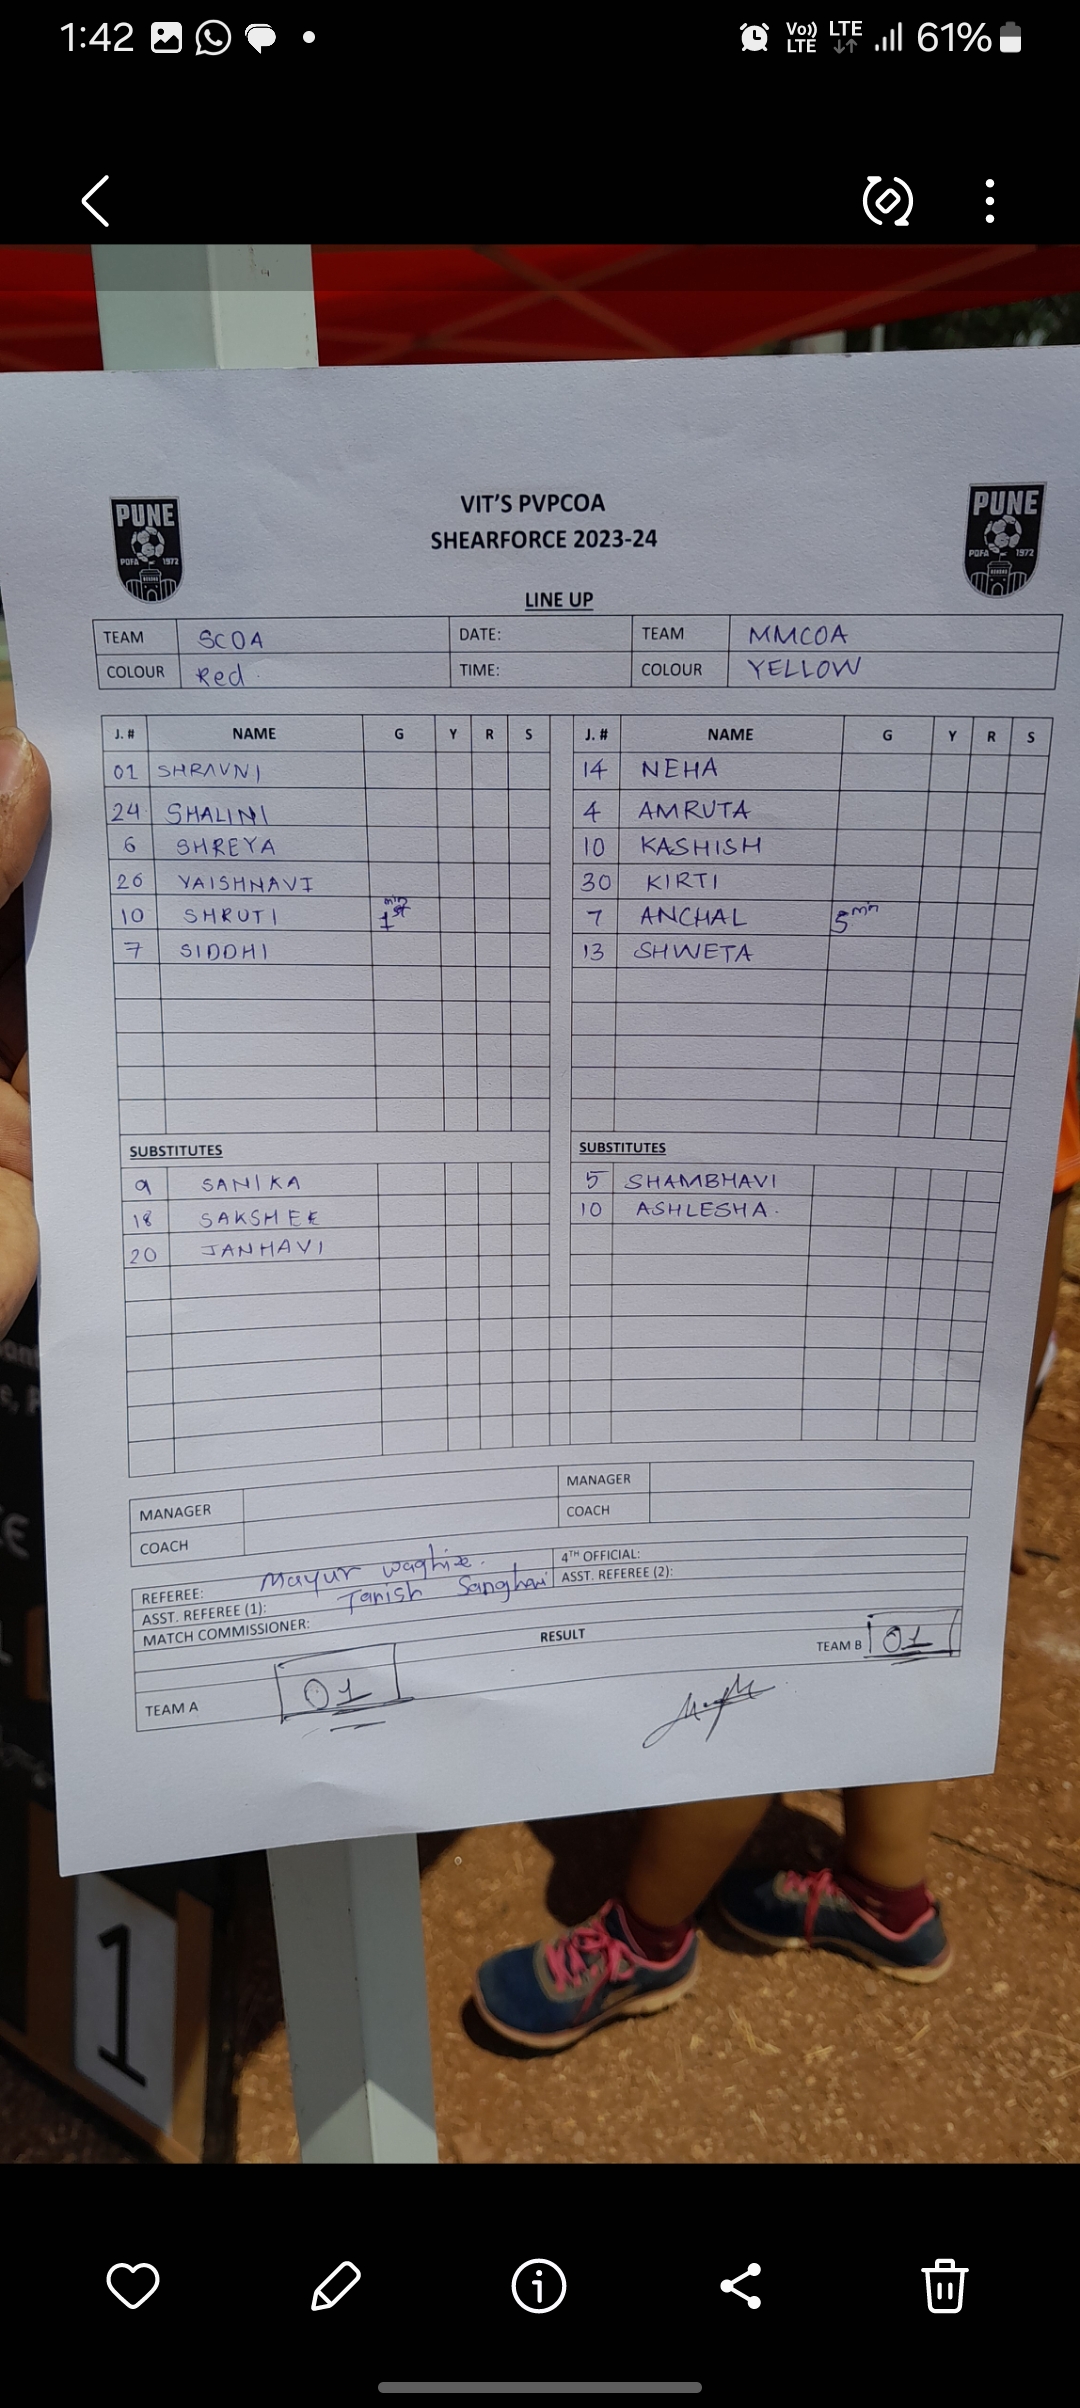 1:42 Vo)) LTE LTE 61%
PUNE
PDFA 1972
VIT'S PVPCOA
SHEARFORCE 2023-24
PUNE
PDFA 1972
LINE UP
TEAM SCOA DATE: TEAM MMCOA
COLOUR Red TIME: COLOUR YELLOW
J. # NAME G Y R S J. # NAME G Y R S
01 SHRAVNI 14 NEHA
24 SHALINI 4 AMRUTA
6 SHREYA 10 KASHISH
26 VAISHNAVI 30 KIRTI
10 SHRUTI 1st min 7 ANCHAL 5 min
7 SIDDHI 13 SHWETA
SUBSTITUTES SUBSTITUTES
9 SANIKA 5 SHAMBHAVI
18 SAKSHEE 10 ASHLESHA.
20 JANHAVI
MANAGER MANAGER
COACH COACH
REFEREE: Mayur waghire. 4TH OFFICIAL:
ASST. REFEREE (1): Tanish Sanghavi ASST. REFEREE (2):
MATCH COMMISSIONER:
RESULT
TEAM A 01 TEAM B 01
1